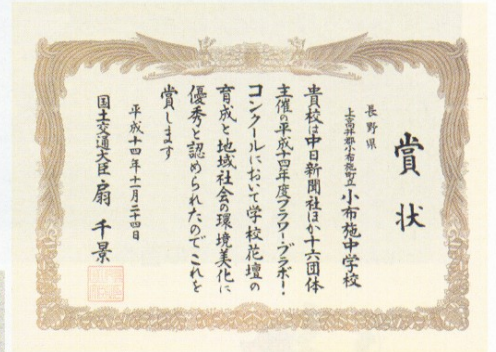 賞状
長野県
上高井郡小布施町立小布施中学校
貴校は中日新聞社ほか十六団体
主催の平成十四年度フラワー・ブラボー・
コンクールにおいて学校花壇の
育成と地域社会の環境美化に
優秀と認められたのでこれを
賞します
平成十四年十一月二十四日
国土交通大臣 扇 千景